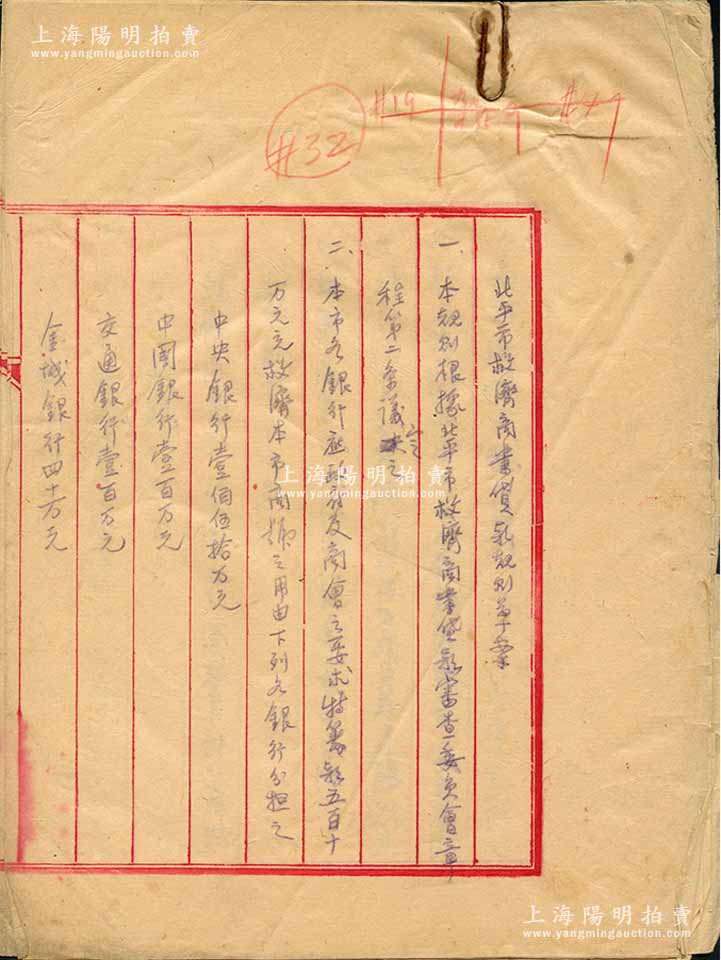 上海陽明拍賣
www.yangmingauction.com
#32
#19
北平市救濟商業貸款規則草案
一、本規則根據北平市救濟商業貸款審查委員會章
程第二條議定之
二、本市各銀行應政府及商會之要求特籌款五百十
万元充救濟本市商號之用由下列各銀行分担之
中央銀行壹佰伍拾万元
中國銀行壹百万元
交通銀行壹百万元
金城銀行四十万元
上海陽明拍賣
www.yangmingauction.com
上海陽明拍賣
www.yangmingauction.com